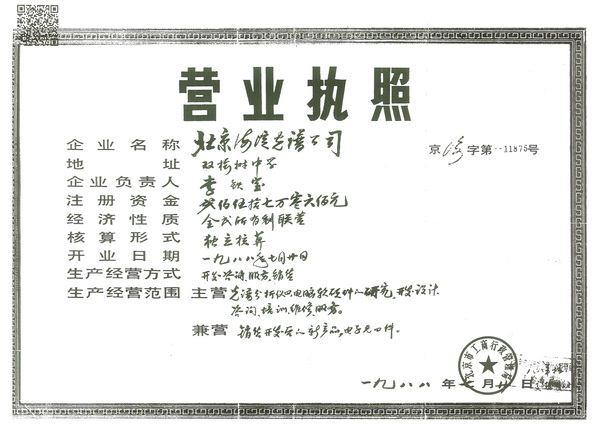 营业执照
企业名称 北京海淀光谱公司
京海字第--11875号
地址 双榆树中学
企业负责人 李钦宝
注册资金 贰佰伍拾七万零六佰元
经济性质 全民所有制联营
核算形式 独立核算
开业日期 一九八八年七月廿日
生产经营方式 开发.咨询.服务.销售
生产经营范围 主营 光谱分析仪及电脑软硬件的研究.开发.设计.
咨询.培训.维修服务。
兼营 销售开发后的新产品,电子元四件。
北京市工商行政管理局
一九八八年七月廿日